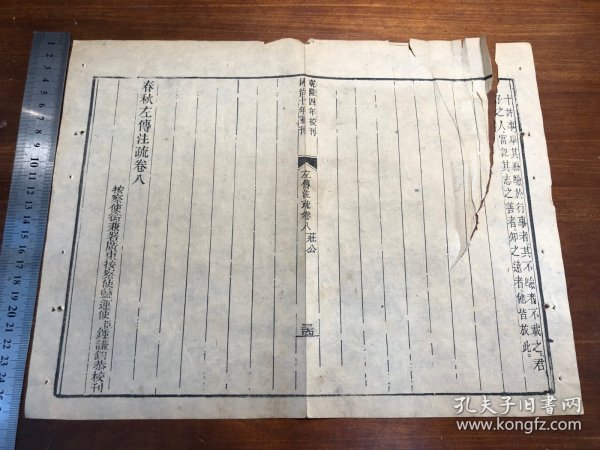 其驗於行事者其不驗者不載之君
子之人當記其志之善者知之遠者他皆放此
乾隆四年校刊
同治十年重刊
左傳注疏卷八 莊公
春秋左傳注疏卷八
按察使銜兼署廣東按察使鹽運使臣鍾謙鈞恭校刊
孔夫子旧书网
www.kongfz.com